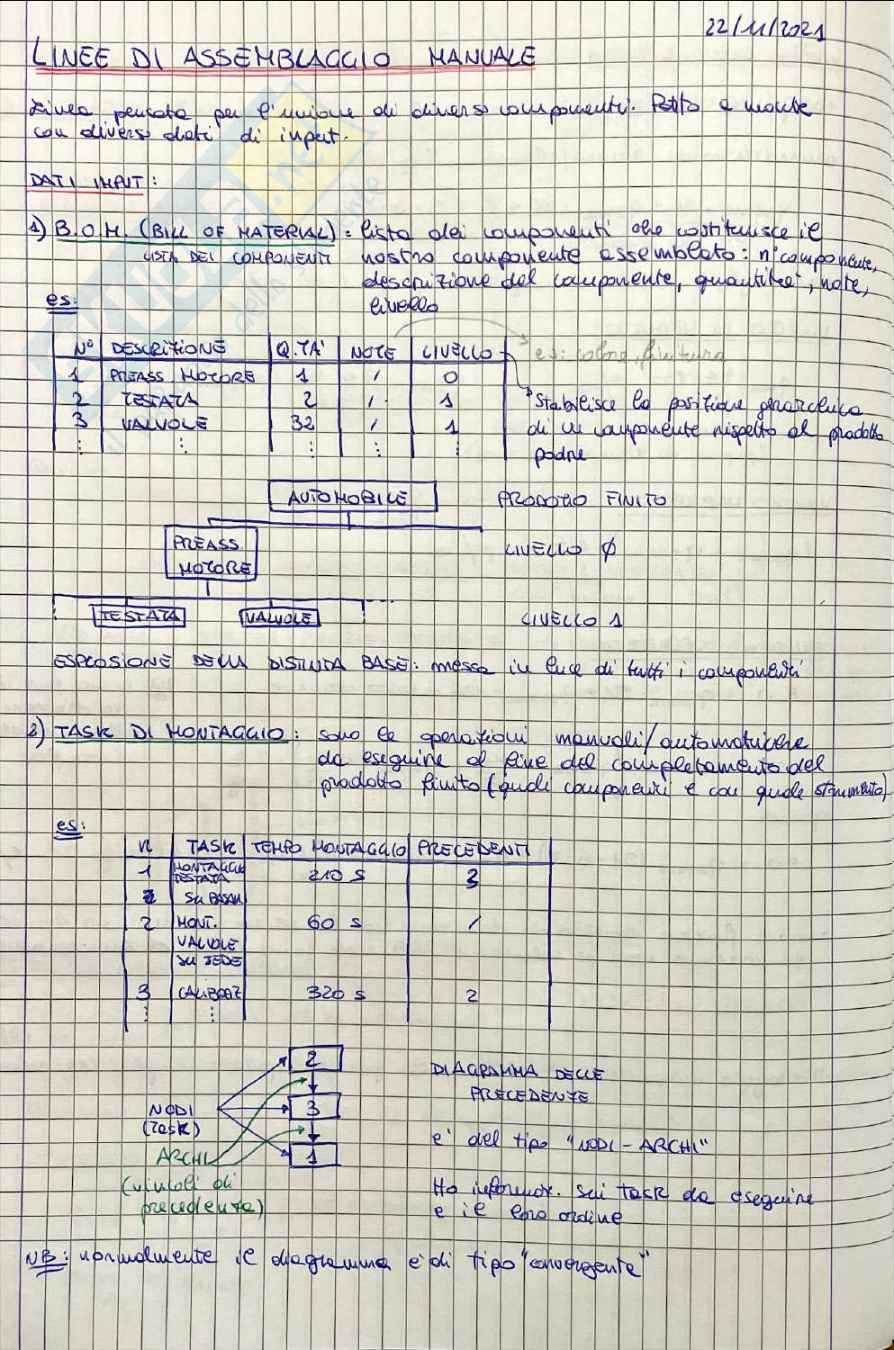 22/11/2021
LINEE DI ASSEMBLAGGIO MANUALE
Linea pensata per l'unione di diversi componenti. Parto a monte
con diversi dati di input.
DATI INPUT:
1) B.O.M. (BILL OF MATERIAL): lista dei componenti che costituisce il
LISTA DEI COMPONENTI nostro componente assemblato: n° componente,
descrizione del componente, quantità, note,
livello
es:
N° DESCRIZIONE Q.TA' NOTE LIVELLO es: colore, finitura
1 PREASS MOTORE 1 / 0
2 TESTATA 2 / 1 Stabilisce la posizione gerarchica
3 VALVOLE 32 / 1 di un componente rispetto al prodotto
⋮ ⋮ ⋮ ⋮ ⋮ padre
AUTOMOBILE PRODOTTO FINITO
PREASS. LIVELLO Ø
MOTORE
TESTATA VALVOLE LIVELLO 1
ESPLOSIONE DELLA DISTINTA BASE: messa in luce di tutti i componenti
2) TASK DI MONTAGGIO: sono le operazioni manuali/automatiche
da eseguire al fine del completamento del
prodotto finito (quali componenti e con quale strumento)
es:
n TASK TEMPO MONTAGGIO PRECEDENTI
1 MONTAGGIO 210 s 3
TESTATA
SU
2 MONT. 60 s /
VALVOLE
SU SEDE
3 320 s 2
⋮ ⋮
2
DIAGRAMMA DELLE
PRECEDENZE
NODI 3
(TASK)
e' del tipo "NODI-ARCHI"
ARCHI 1
(vincoli di
precedenza)
Ho informaz. sui task da eseguire
e il loro ordine
NB: normalmente il diagramma e' di tipo "convergente"